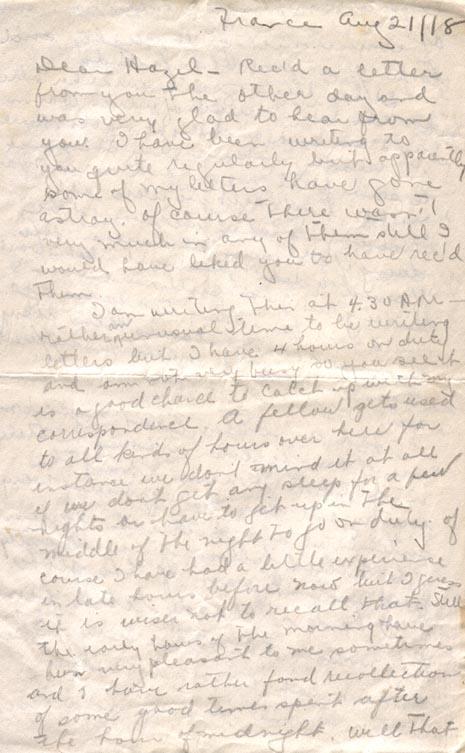 France Aug 21/18
Dear Hazel - Rec'd a letter
from you the other day and
was very glad to hear from
you. I have been writing to
you quite regularly but apparently
some of my letters have gone
astray. Of course there wasn't
very much in any of them still I
would have liked you to have rec'd
them.
I am writing this at 4.30 AM -
rather an unusual time to be writing
letters but I have 4 hours on duty
and am not very busy so you see it
is a good chance to catch up with my
correspondence. A fellow gets used
to all kinds of hours over here for
instance we don't mind it at all
if we don't get any sleep for a few
nights or have to get up in the
middle of the night to go on duty. Of
course I have had a little experience
in late hours before now but I guess
it is wiser not to recall that. Still
the early hours of the morning have
been very pleasant to me sometimes
and I have rather fond recollection
of some good times spent after
the hour of midnight. Well that